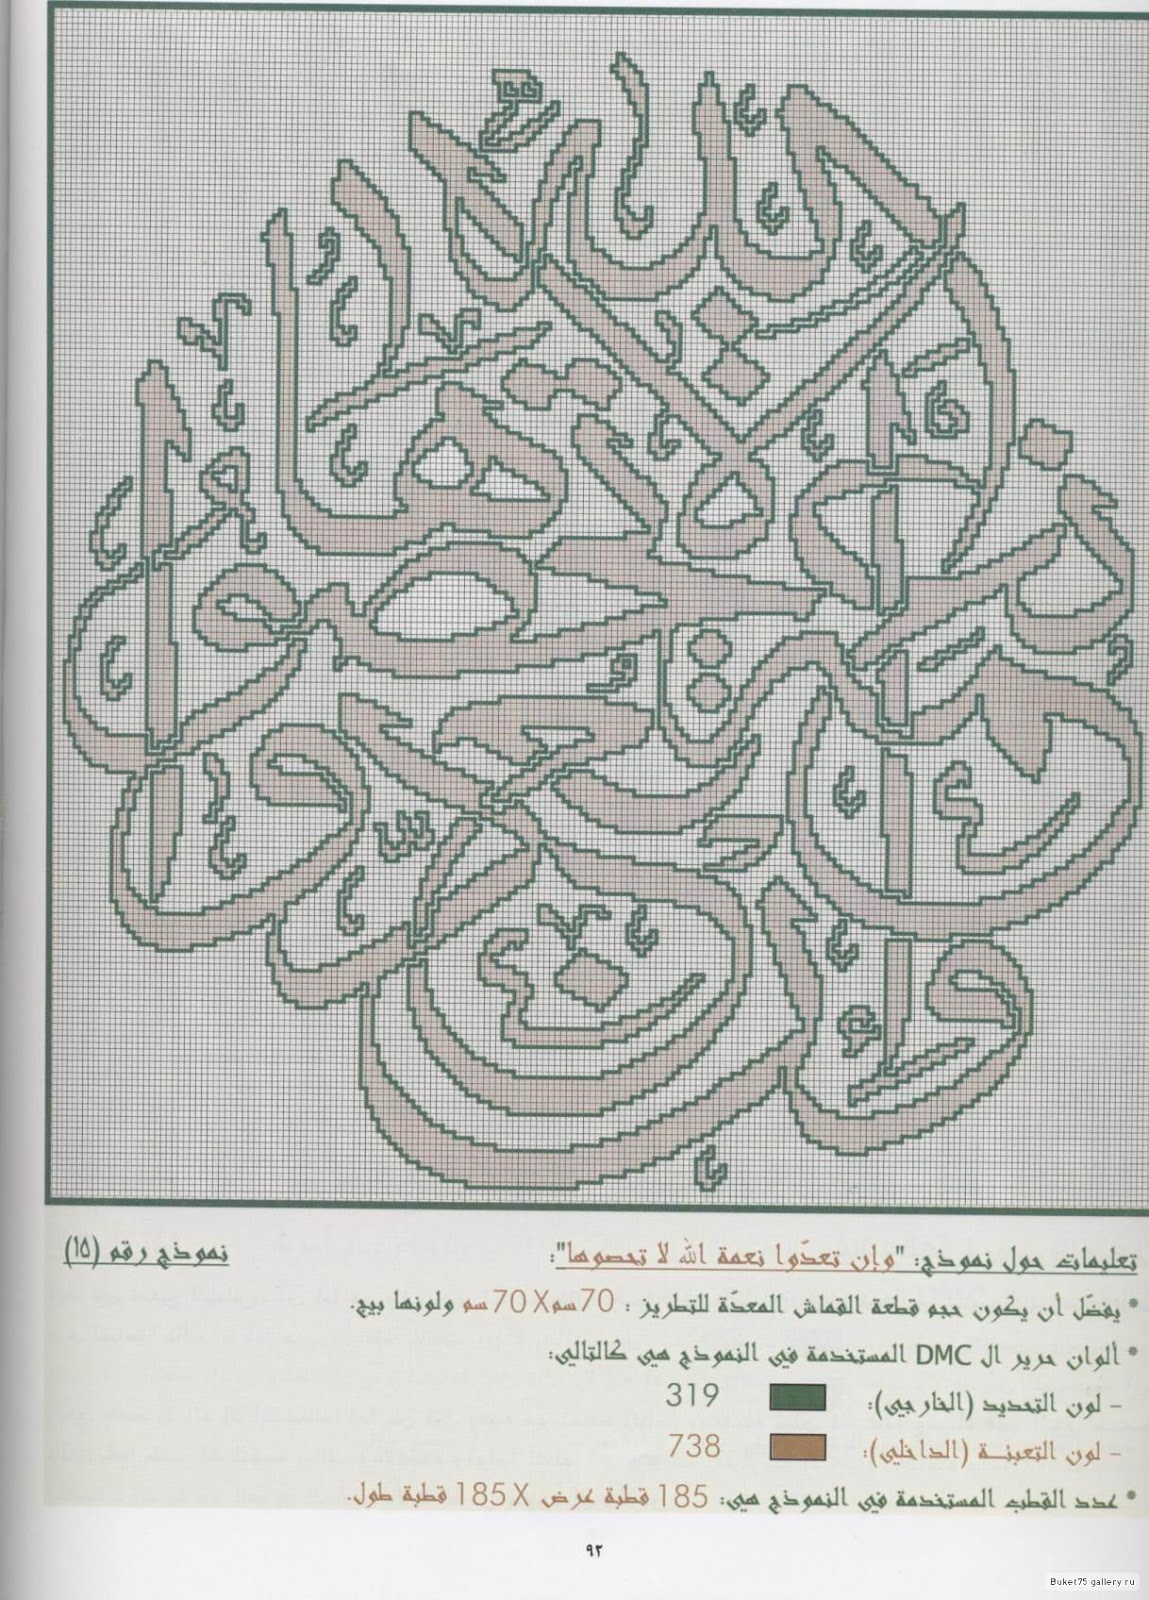 تعليمات حول نموذج: "وإن تعدّوا نعمة الله لا تحصوها": نموذج رقم (١٥)
* يفضّل أن يكون حجم قطعة القماش المعدّة للتطريز : 70سمX70سم ولونها بيج.
* ألوان حرير ال DMC المستخدمة في النموذج هي كالتالي:
- لون التحديد (الخارجي): 319
- لون التعبئـة (الداخلي): 738
* عدد القطب المستخدمة في النموذج هي: 185 قطبة عرض X 185 قطبة طول.
٩٢
Buket75 gallery ru